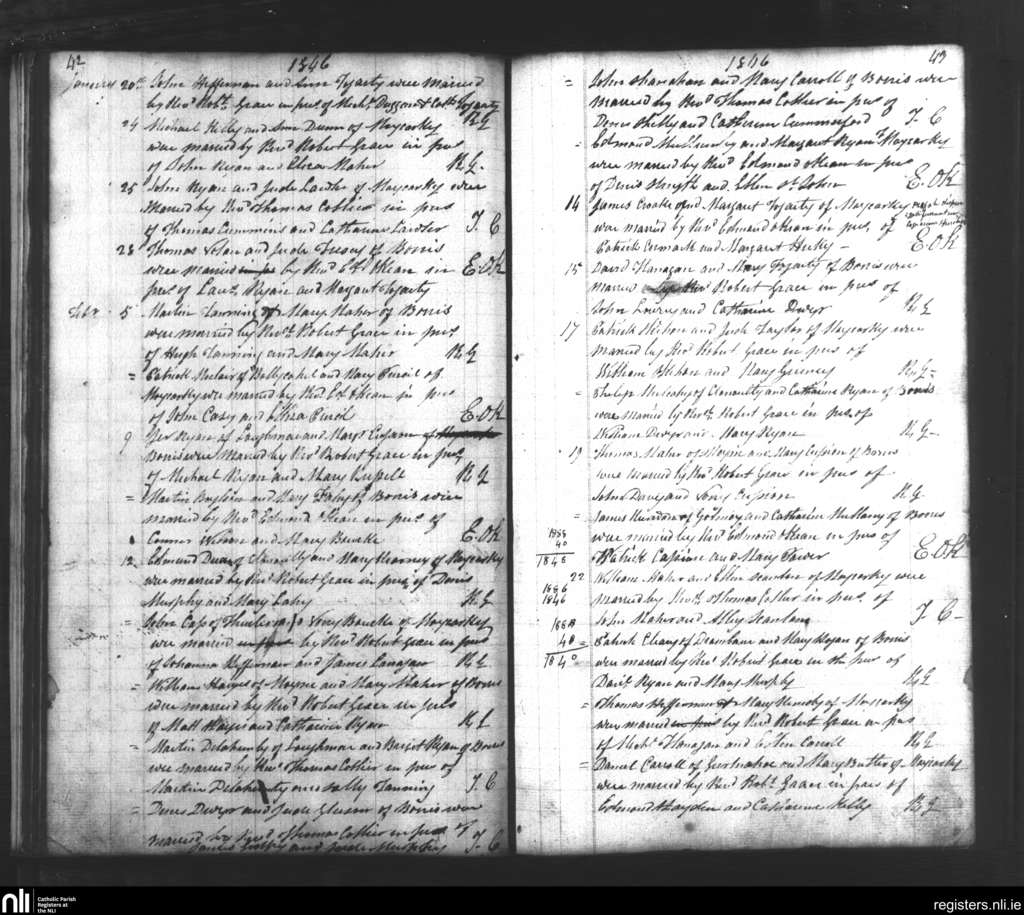 42
1846
January 20th John Heffernan and Ann Fogarty were married
by Revd Robt. Grace in pres of Michl Duggan & Cath Fogarty
R G
24 Michael Kelly and Ann Dunn of Moycarky
were married by Revd Robert Grace in pres
of John Ryan and Eliza Maher R G.
25 John Ryan and Jude Lawler of Moycarky were
Married by Revd Thomas Cottier in pres
of Thomas Cummins and Catharine Lawler T C
28 Thomas and Jude of Borris
were married by Revd Ed. OKean in E. OK
pres of Lau. Ryan and Margaret Fogarty
Feby 5 Martin Fanning & Mary Maher of Borris
were married by Revd. Robert Grace in pres
of Hugh Fanning and Mary Maher R G
= Patrick of Ballycahil and Mary of
Moycarky were married by Revd Ed OKean in pres
of John Casy and E. OK
9 Ryan of Loughmore and Mary of
Borris were Married by Revd Robert Grace in pres
of Michael Ryan and Mary R G
= Martin and Mary Fahy of Borris were
married by Revd Edmond OKean in pres of
Connor and Mary Bourke E. OK
12 Edmund of and Mary Kearney of Moycarky
were married by Revd Robert Grace in pres of Denis
Murphy and Mary Lahy R G
= John Cass of Thurles & Nony Bourke of Moycarky
were married by Revd Robert Grace in pres
of Johanna Heffernan and James Lanagan R G
= William Hayes of Moyne and Mary Maher of Borris
were married by Revd Robert Grace in pres
of Matt Hayes and Catharine Ryan R G
= Martin Delahunty of Loughmore and Bridget Ryan of Borris
were married by Revd Thomas Cottier in pres of
Martin Delahunty and Sally Fanning T C
= Denis Dwyer and Jude Gleeson of Borris were
married by Revd Thomas Cottier in pres of
James and Jude Murphy T C
1846
43
= John Shanahan and Mary Carroll of Borris were
Married by Revd Thomas Cottier in pres of
Denis Kelly and Catherine Cummerford T C
= Edmond and Margaret Ryan of Moycarky
were married by Revd Edmond OKean in pres
of Denis Smyth and Ellen St John E. OK
14 James Crooke and Margaret Fogarty of Moycarky
were married by Revd Edmund OKean in pres of
Patrick Cormack and Margaret Hickey - E. OK
15 David Flanagan and Mary Fogarty of Borris were
married Revd Robert Grace in pres of
John Lowry and Catharine Dwyer R G
17 Patrick and Jude Taylor of Moycarky were
married by Revd Robert Grace in pres of
William and Mary R G -
= Philip Mulcahy of and Catharine Ryan of Borris
were married by Revd. Robert Grace in pres of
William Dwyer and Mary Ryan R G -
19 Thomas Maher of Moyne and Mary of Borris
were married by Revd Robert Grace in pres of
John Davy and Nony R G
= James of Gortnoy and Catharine Mullany of Borris
were married by Revd Edmond OKean in pres of
Patrick and Mary Power E. OK
1888
40
1848
22 William Maher and Ellen Scanlan of Moycarky were
married by Revd. Thomas Cottier in pres of
John Maher and Abbey Scanlan T C -
1886
1846
1888
40
1840
= Patrick Cleary of Drombane and Mary Ryan of Borris
were married by Revd Robert Grace in the pres of
David Ryan and Mary Murphy R G
= Thomas Heffernan & Mary of Moycarky
were married by Revd Robert Grace in pres
of Michl. Flanagan and Ellen Carroll R G
= Daniel Carroll of Gurtnahoe and Mary Butler of Moycarky
were married by Revd Robt. Grace in pres of
Edmond Hayden and Catharine Kelly R G
nli
Catholic Parish
Registers at
the NLI
registers.nli.ie